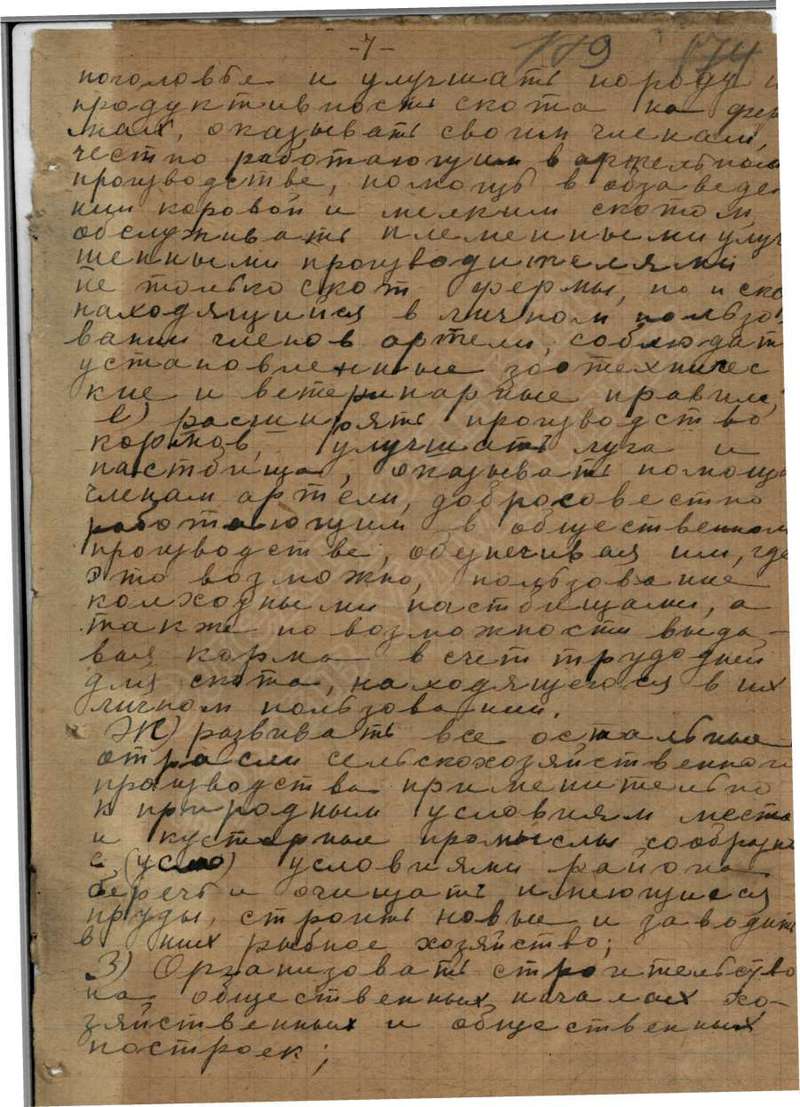 -7-
119 174
поголовье и улучшать породу и
продуктивность скота на фер
мах, оказывать своим членам,
честно работающим в артельном
производстве, помощь в обзаведе
нии коровой и мелким скотом,
обслуживать племенными улуч
шенными производителями
не только скот фермы, но и ско
находящийся в личном пользо
вании членов артели, соблюдать
установленные зоотехничес
кие и ветеринарные правила;
е) расширять производство
кормов, улучшать луга и
пастбища, оказывать помощь
членам артели, добросовестно
работающим в общественном
производстве, обеспечивая им, где
это возможно, пользование
колхозными пастбищами, а
также по возможности выда-
вая корма в счет трудодней
для скота, находящегося в их
личном пользовании.
Ж) развивать все остальные
отрасли сельскохозяйственного
производства применительно
к природным условиям места
и кустарные промыслы сообразно
с (усло) условиями района
беречь и очищать имеющиеся
пруды, строить новые и заводить
в них рыбное хозяйство;
З) Организовать строительство
на общественных началах хо-
зяйственных и общественных
построек;